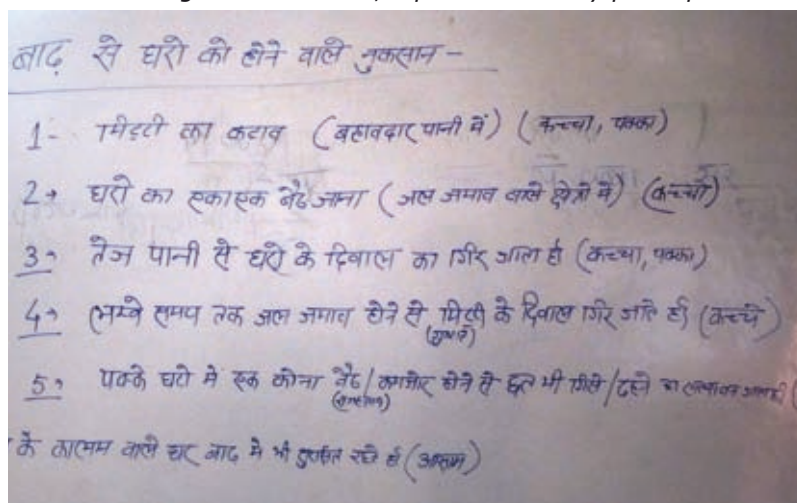 बाढ़ से घरो को होने वाले नुकसान -
1- मिट्टी का कटाव (बहावदार पानी में) (कच्चा, पक्का)
2→ घरो का एकाएक बैठ जाना (जल जमाव वाले क्षेत्रो में) (कच्चा)
3→ तेज पानी से घरो के दिवाल का गिर जाता है (कच्चा, पक्का)
4→ लम्बे समय तक जल जमाव होने से मिट्टी के दिवाल गिर जाते हैं (कच्चे)
5→ पक्के घरो में एक कोना बैठ/कमजोर होने से छत भी गिरने/ढहने
के कालम वाले घर बाढ़ में भी सुरक्षित रहते हैं (आसाम)